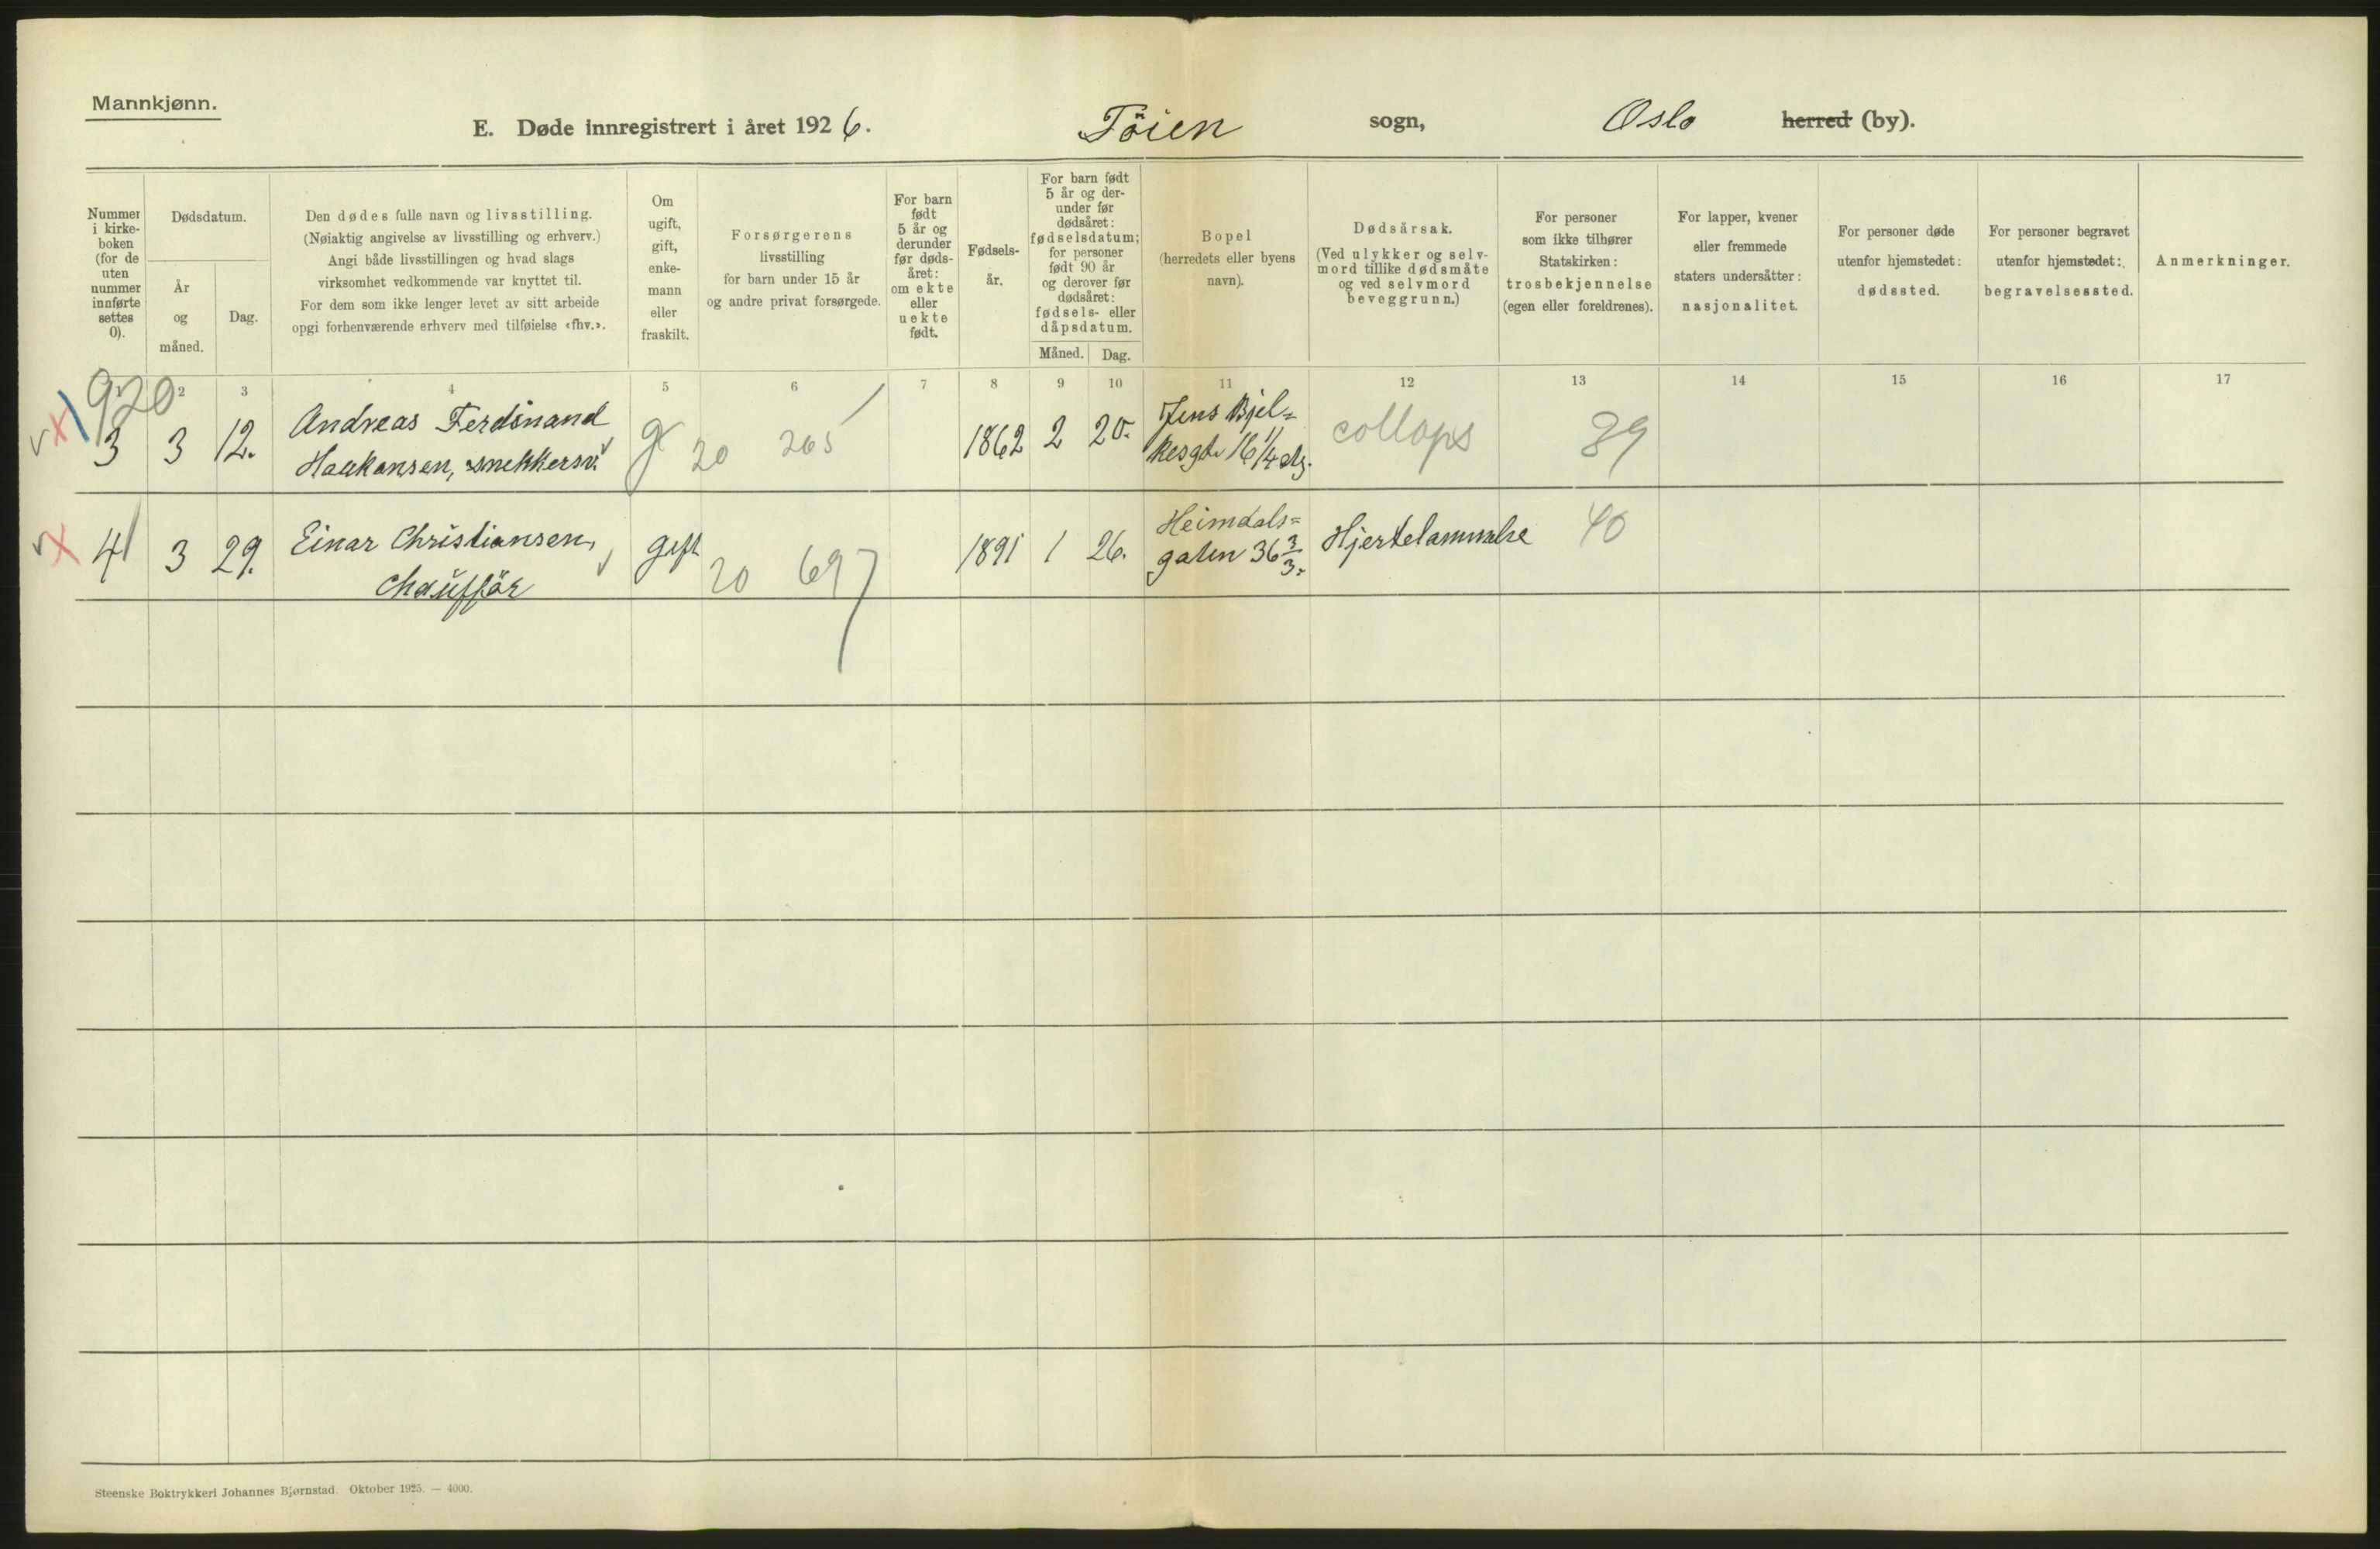 Mannkjønn.
E. Døde innregistrert i året 1926. Töien sogn, Oslo herred (by).
Nummer
i kirke-
boken
(for de
uten
nummer
innførte
settes
0).
Dødsdatum.
År
og
måned.
Dag.
Den dødes fulle navn og livsstilling.
(Nøiaktig angivelse av livsstilling og erhverv.)
Angi både livsstillingen og hvad slags
virksomhet vedkommende var knyttet til.
For dem som ikke lenger levet av sitt arbeide
opgi forhenværende erhverv med tilføielse «fhv.».
Om
ugift,
gift,
enke-
mann
eller
fraskilt.
Forsørgerens
livsstilling
for barn under 15 år
og andre privat forsørgede.
For barn
født
5 år og
derunder
før døds-
året:
om ekte
eller
uekte
født.
Fødsels-
år.
For barn født
5 år og der-
under før
dødsåret:
fødselsdatum;
for personer
født 90 år
og derover før
dødsåret:
fødsels- eller
dåpsdatum.
Måned. Dag.
Bopel
(herredets eller byens
navn).
Dødsårsak.
(Ved ulykker og selv-
mord tillike dødsmåte
og ved selvmord
beveggrunn.)
For personer
som ikke tilhører
Statskirken:
trosbekjennelse
(egen eller foreldrenes).
For lapper, kvener
eller fremmede
staters undersåtter:
nasjonalitet.
For personer døde
utenfor hjemstedet:
dødssted.
For personer begravet
utenfor hjemstedet:
begravelsessted.
Anmerkninger.
2 3 4 5 6 7 8 9 10 11 12 13 14 15 16 17
920
3 3 12. Andreas Ferdinand g 20 265 1862 2 20. Jens Bjel= collaps 89
Haakansen, snekkersv. kesgt. 16 1/4 etg.
4 3 29. Einar Christiansen, gift 20 697 1891 1 26. Heimdals= Hjertelammelse 40
chaufför gaten 36 3/3.
Steenske Boktrykkeri Johannes Bjørnstad. Oktober 1925. — 4000.